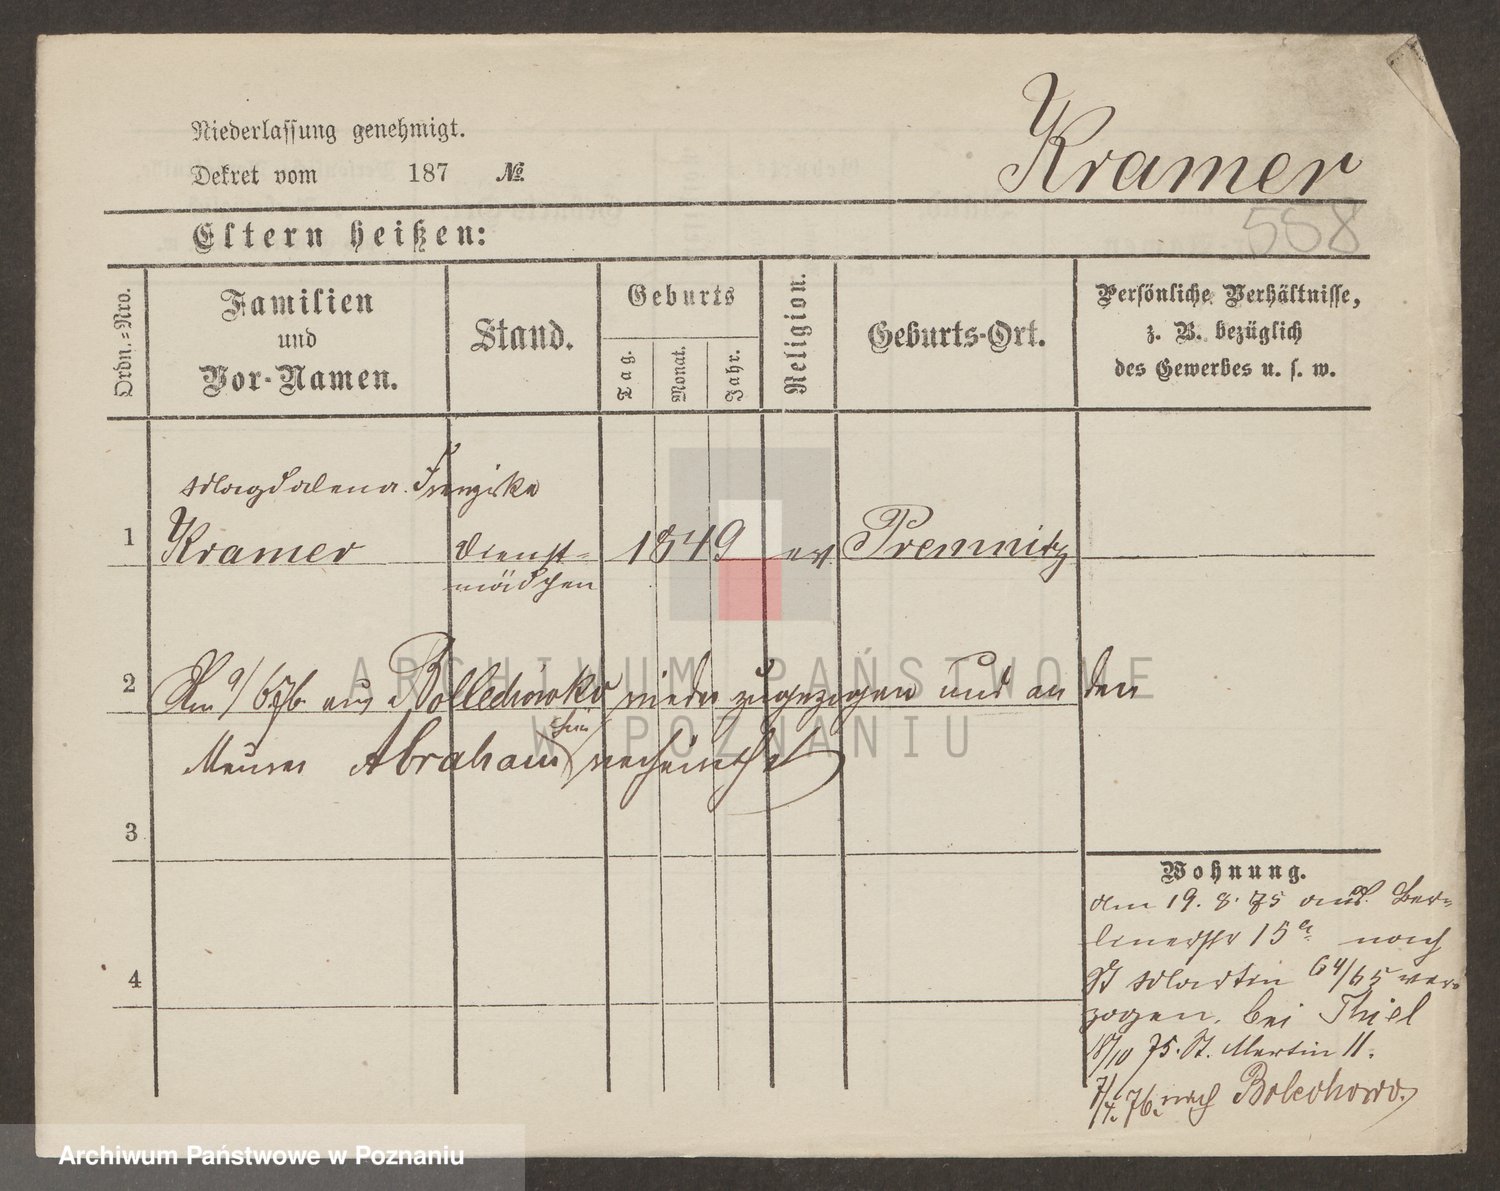 Kramer
558
Niederlassung genehmigt.
Dekret vom 187 №
Eltern heißen:
Ordn.-Nro.
Familien
und
Vor-Namen.
Stand.
Geburts
Tag.
Monat.
Jahr.
Religion.
Geburts-Ort.
Persönliche Verhältnisse,
z. B. bezüglich
des Gewerbes u. s. w.
Magdalena Franziska
1 Kramer Dienst- 1849 ev. Premnitz
mädchen
2 Am 9/6 76 aus Bollechowko wieder zugezogen und an den
Maurer Abraham verheirathet
3
4
Wohnung.
am 19. 8. 75 aus Ber-
linerstr 15a nach
St Martin 64/65 ver-
zogen. bei Thiel
18/10 75. St. Martin 11.
7/4. 76. nach Bolechowo.
ARCHIWUM PAŃSTWOWE
W POZNANIU
Archiwum Państwowe w Poznaniu